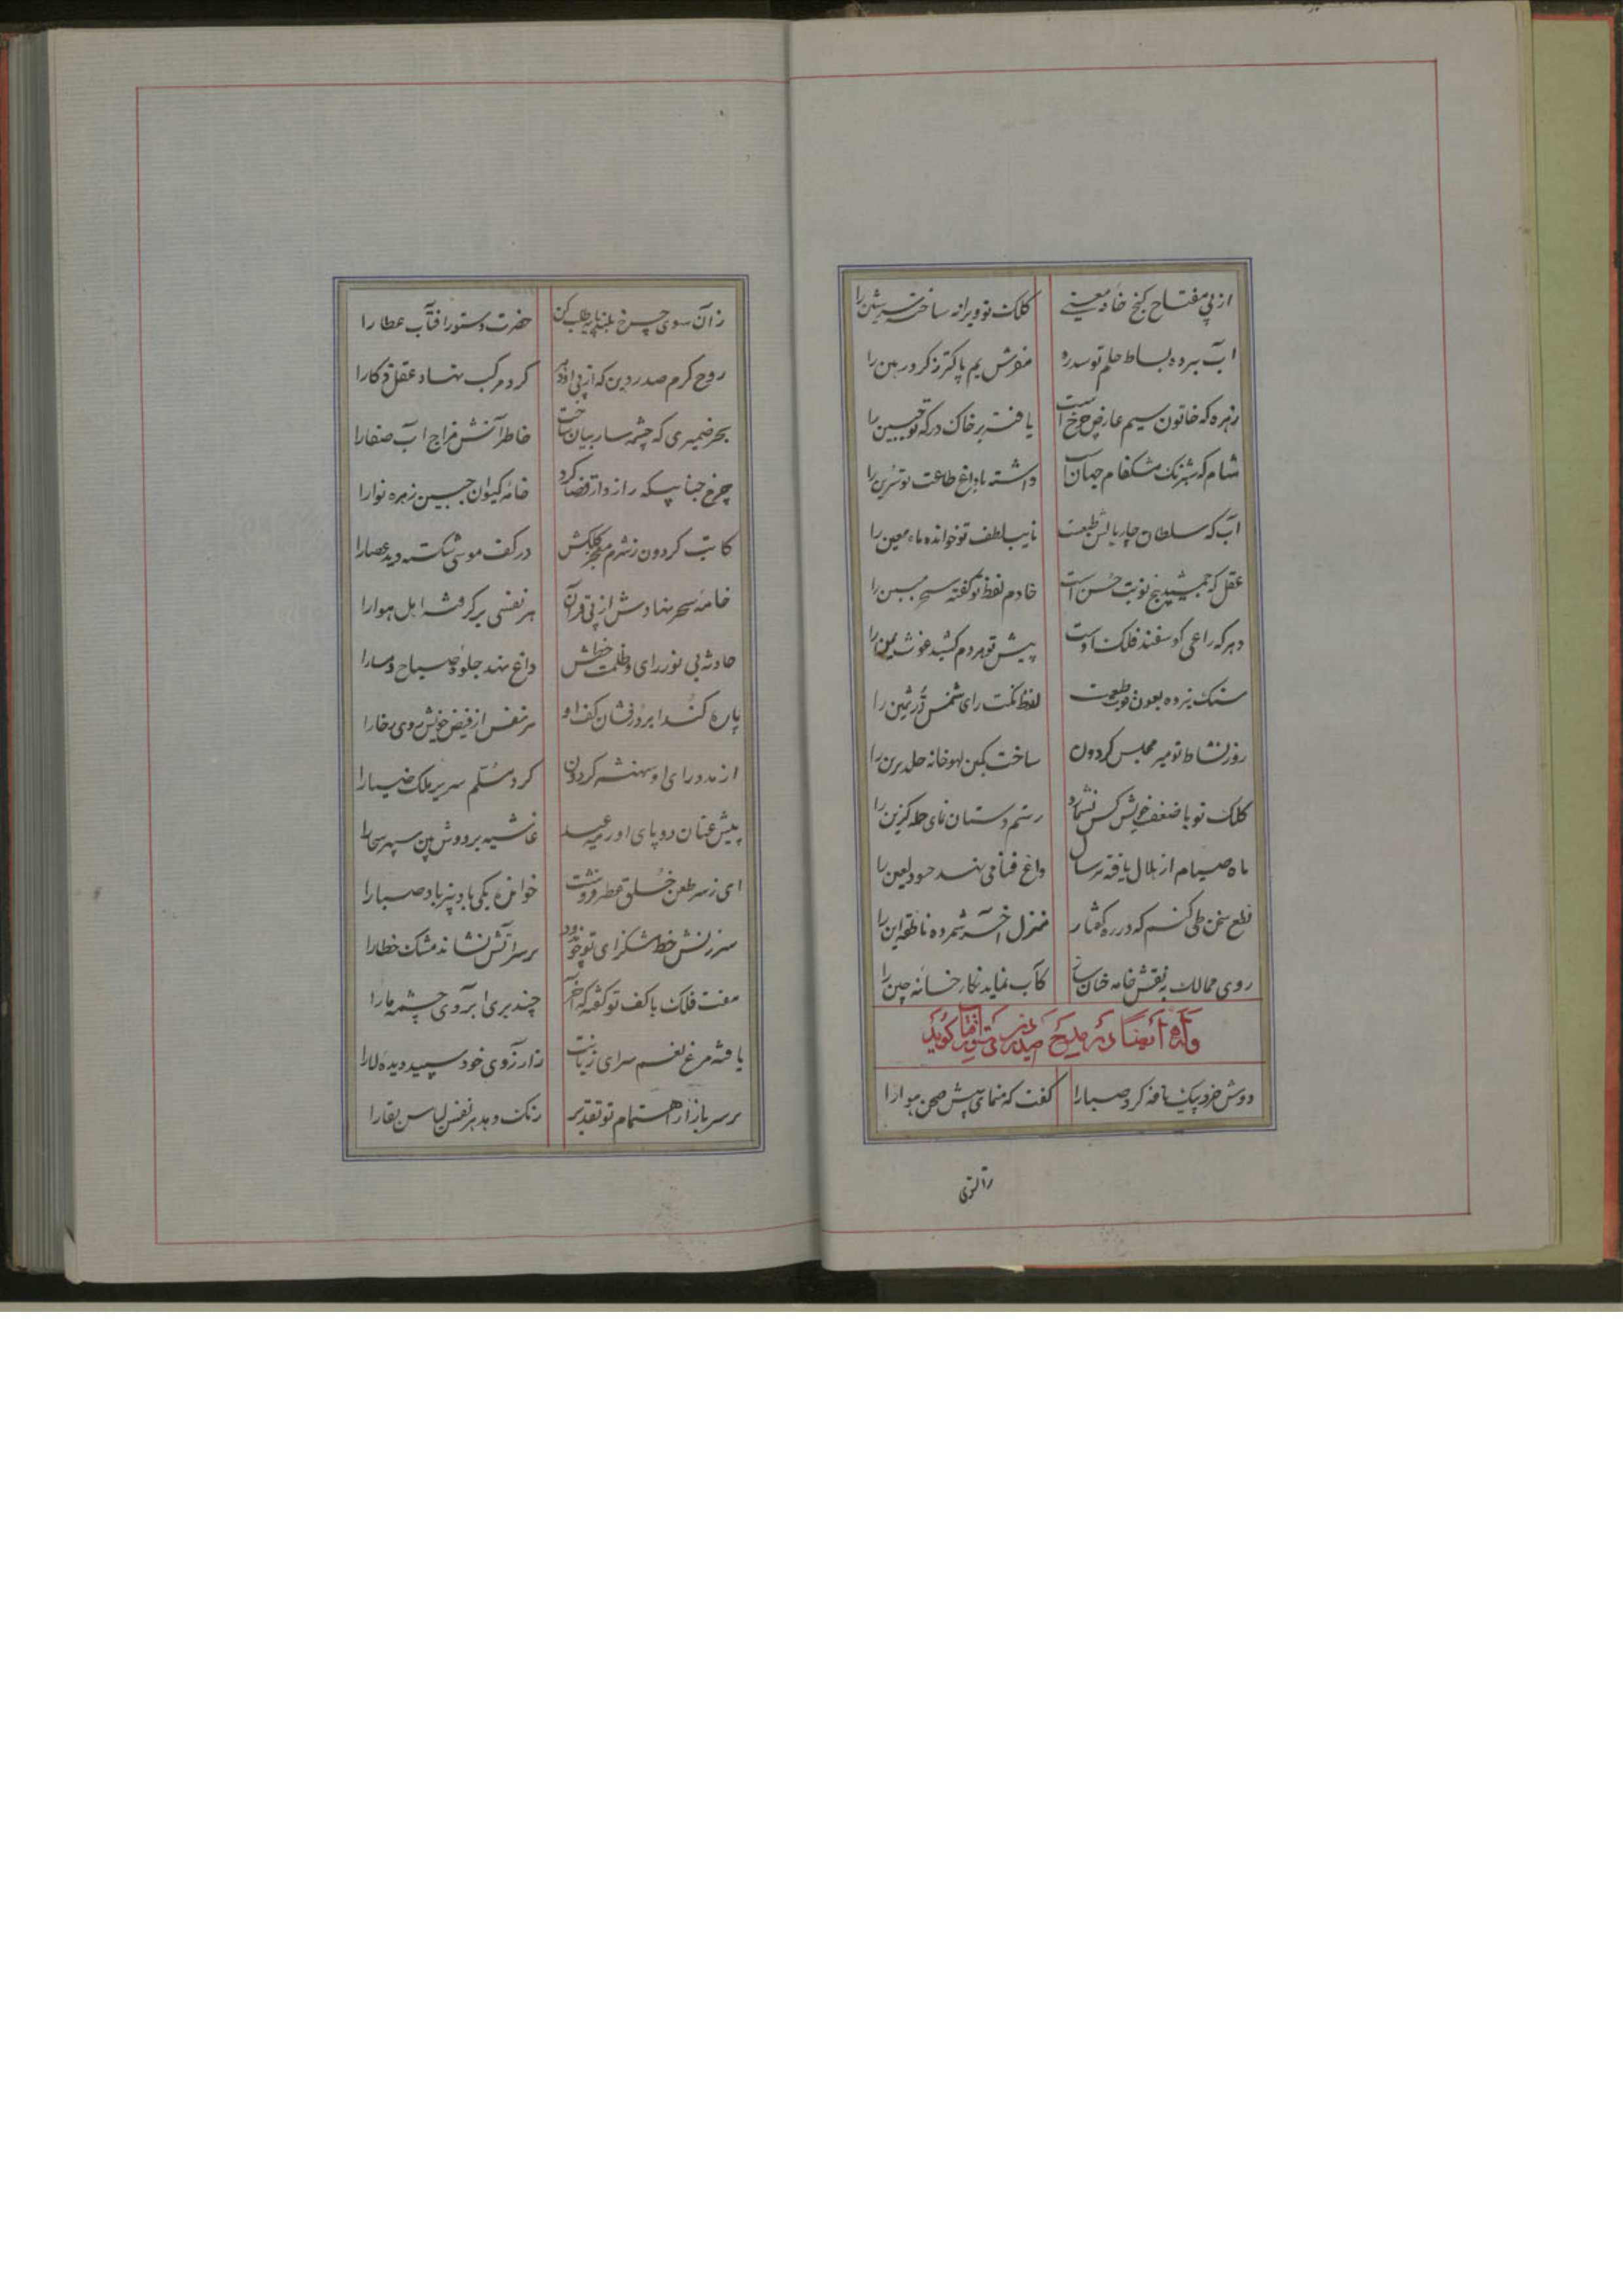 از پی مفتاح کنج خاد معینے کلک تو ویرانه ساخت سین را
آب ببرده بساط حلم تو سدره مفرش یم پاکتر ز کرد رهین را
زهره که خاتون سیم عارض چرخ است یافت بر خاک درکه تو جبین را
شام که شبرنک مشکفام جهانست داشته با داغ طاعت تو سرین را
آب که سلطان چار بالش طبعست نایب لطف تو خوانده ماء معین را
عقل که جمشید پنج نوبت حس است خادم لفظ تو کفته سحر مبین را
دهر که راعی کوسفند فلک اوست پیش تو مردم کشید غوث
سنک بزوده بعون لفظ نکت رای شمس در ثمین را
روز نشاط تو میر مجلس کردون ساخت کمین لهو خانه خلد برین را
کلک تو با ضعف خویش کس نشمارد رستم دستان نمای حله کزین را
ماه صیام از هلال یافته بر سال داغ فنا می نهد حسود لعین را
قطع سخن طی کنم که در ره کفتار منزل آخر شمرده ناطقه این را
روی ممالک به نقش خامه چنان کاب نماید نکار خانه چین را
وله ایضا در مدیح صدر کوید
دوش خرد پیک یافه کرد صبا را کفت که منمای پیش صحن هوا را
زآن سوی
زآن سوی چرخ بلند پایه طلب کن حضرت دستور آفتاب عطا را
روح کرم صدر دین که از پی کرد مرکب نهاد عقل ذکا را
بحر ضمیری که چشمه سار بیان ساخت خاطر آتش مزاج آب صفا را
چرخ جنابیکه رازدار قضا کرد خامه کیوان جبین زهره نوا را
کاتب کردون ز شرم معجز کلکش در کف موسی شکسته دید عصا را
خامه سحر نهادش از پی قرآن هر نفسی برکرفته اهل هوا را
حادثه بی نور رای و ظلمت خطش داغ نهد جلوه صباح و مسا را
پاره کند ابر درفشان کف او هر نفس از فیض خویش روی سخا را
از مدد رای او شهنشه کردون کرد مسلم سریر ملک ضیا را
پیش عنان دو پای او رمیه عید غاشیه بر دوش بین سپهر سخا را
ای ز سر طعن خلق عطر فروشت خوانده یکی باد بیز باد صبا را
سرزنش خط مشکزای تو چون دود بر سر آتش نشانده مشک خطا را
هفت فلک با کف تو کفته که آخر چند بری آبروی چشمه ما را
یافته مرغ نغم سرای زبانت ز آرزوی خود سپید دیده لا را
بر سر بازار اهتمام تو تقدیر رنک دهد هر نفس لباس بقا را